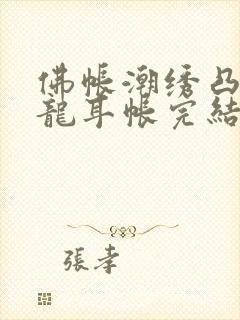 佛帳潮绣凸
龍耳帳完結
張孝